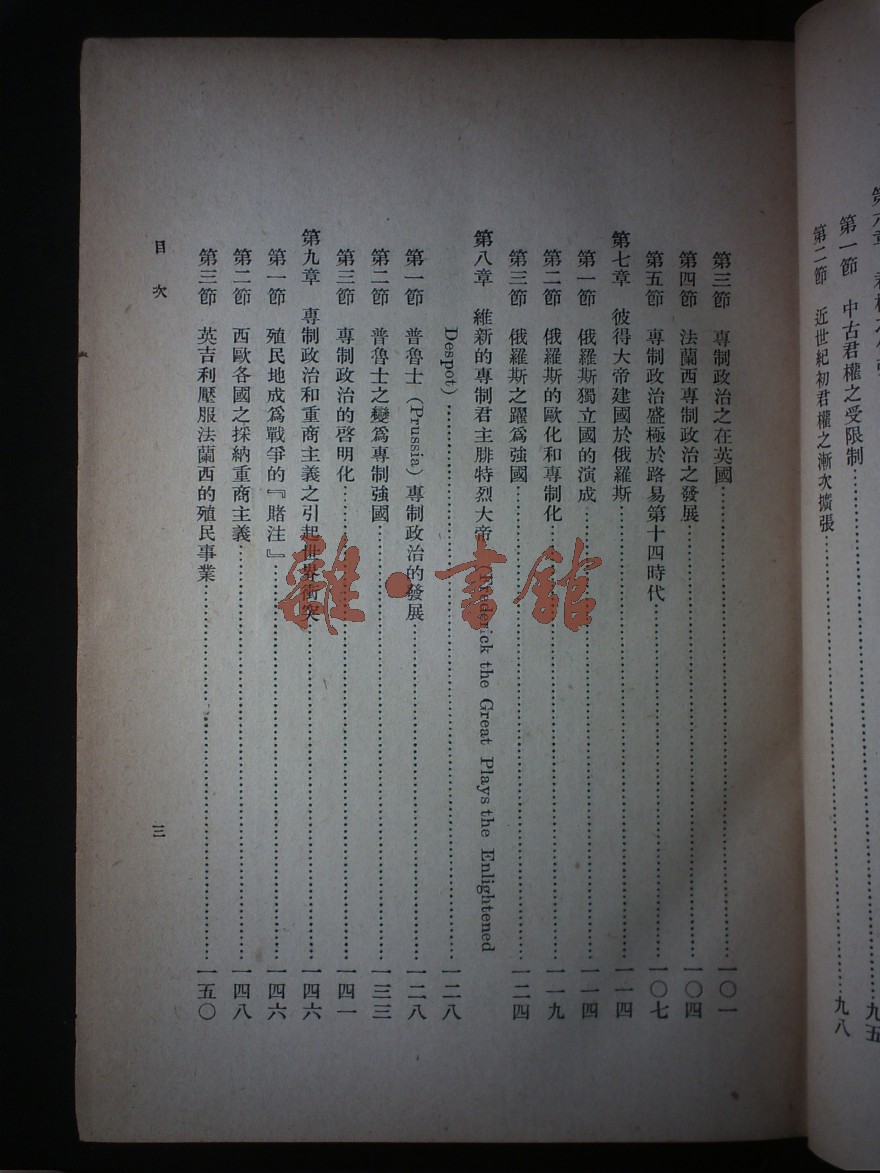 第一節　中古君權之受限制……九八
第二節　近世紀初君權之漸次擴張
第三節　專制政治之在英國……一〇一
第四節　法蘭西專制政治之發展……一〇四
第五節　專制政治盛極於路易第十四時代……一〇七
第七章　彼得大帝建國於俄羅斯……一一四
第一節　俄羅斯獨立國的演成……一一四
第二節　俄羅斯的歐化和專制化……一一九
第三節　俄羅斯之躍爲強國……一二四
第八章　維新的專制君主腓特烈大帝（Frederick the Great Plays the Enlightened
Despot）……一二八
第一節　普魯士（Prussia）專制政治的發展……一二八
第二節　普魯士之變爲專制強國……一三三
第三節　專制政治的啓明化……一四一
第九章　專制政治和重商主義之引起世界衝突……一四六
第一節　殖民地成爲戰爭的『賭注』……一四六
第二節　西歐各國之採納重商主義……一四八
第三節　英吉利壓服法蘭西的殖民事業……一五〇
目次
三
雜·書館